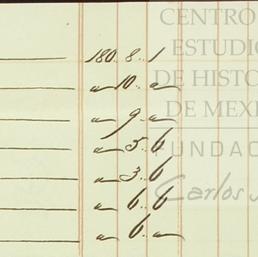 CENTRO
ESTUDIO
DE HISTO
DE MEXI
FUNDAC
Carlos
180. 8.. 1
" 10.. "
" 9.. "
" 5.. 6
" 3.. 6
" 6.. 6
" 6.. "